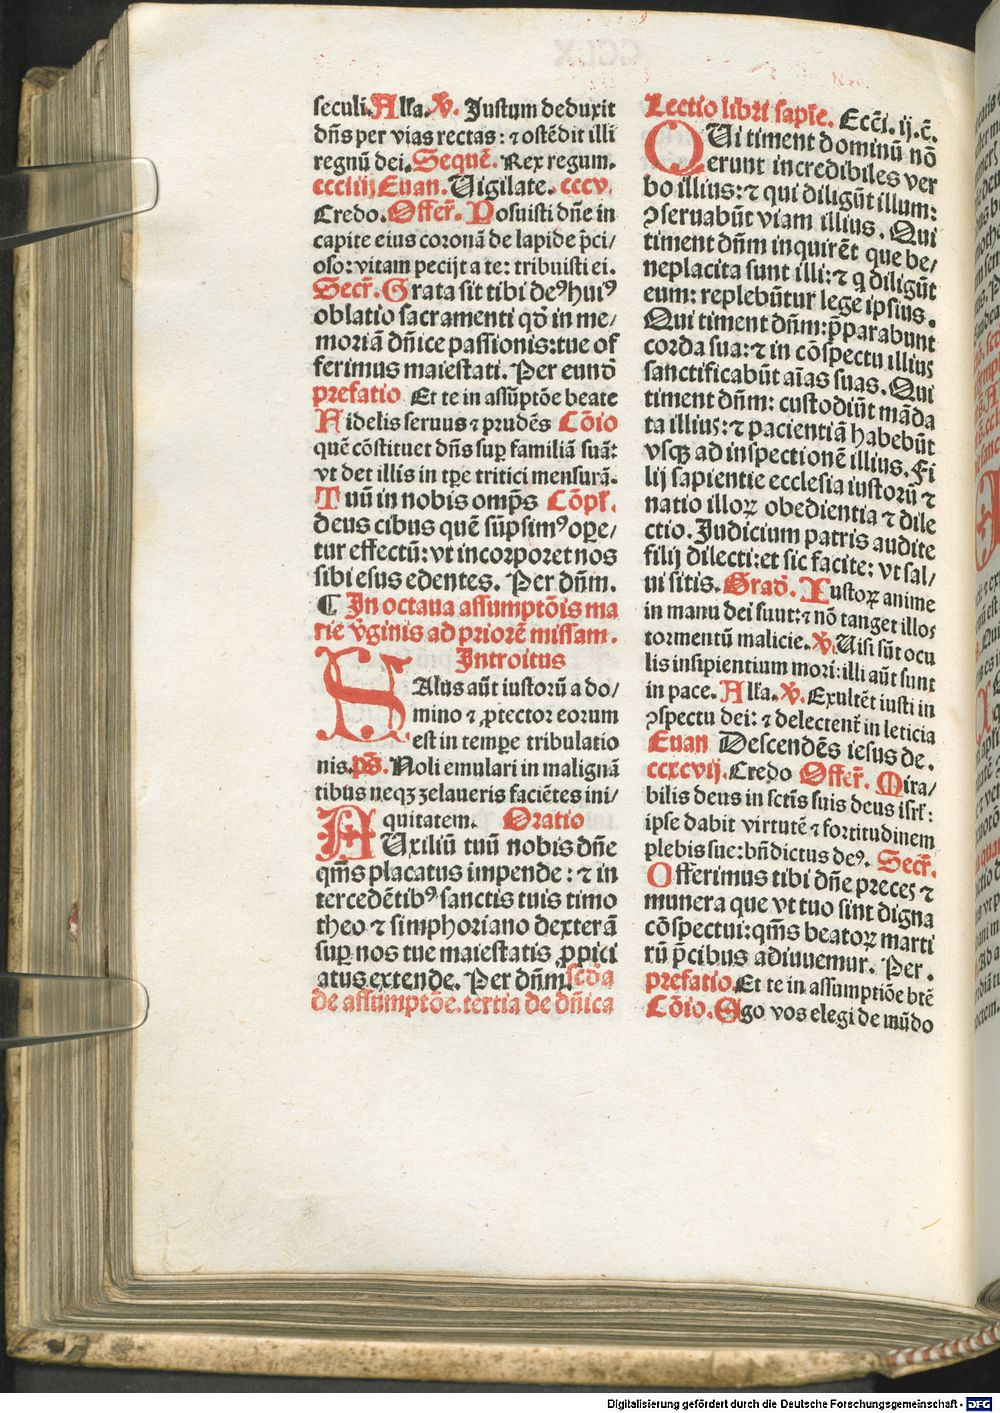 seculi. Alľa. ℣. Justum deduxit
dn̄s per vias rectas: ⁊ ostēdit illi
regnū dei. Sequē. Rex regum.
ccccliiij Euan. Uigilate. cccv.
Credo. Offer̄. Posuisti dn̄e in
capite eius coronā de lapide p̄ci/
oso: vitam pecijt a te: tribuisti ei.
Secr̄. Grata sit tibi deꝰ huiꝰ
oblatio sacramenti qō in me/
moriā dn̄ice passionis: tue of
ferimus maiestati. Per eundē
prefatio Et te in assūptōe beate
Fidelis seruus ⁊ prudēs Cōio
quē cōstituet dn̄s suꝑ familiā suā:
vt det illis in tꝑe tritici mensurā.
Tuū in nobis omp̄s Cōpľ.
deus cibus quē sūpsimꝰ oꝑe/
tur effectū: vt incorporet nos
sibi esus edentes. Per dn̄m.
¶ In octaua assumptōis ma
rie v̄ginis ad priorē missam.
Introitus
SAlus aūt iustorū a do/
mino ⁊ ꝓtector eorum
est in tempe tribulatio
nis. p̄s. Noli emulari in malignā
tibus neqꝫ zelaueris faciētes ini/
quitatem. Oratio
AUxiliū tuū nobis dn̄e
qm̄s placatus impende: ⁊ in
tercedētibꝰ sanctis tuis timo
theo ⁊ simphoriano dexterā
suꝑ nos tue maiestatis ꝓpici
atus extende. Per dn̄m. scd̄a
de assumptōe. tertia de dn̄ica
Lectio libri sapīe. Ecci. ij. c̄.
QUi timent dominū nō
erunt incredibiles ver
bo illius: ⁊ qui diligūt illum:
ꝯseruabūt viam illius. Qui
timent dn̄m inquirēt que be/
neplacita sunt illi: ⁊ q̄ diligūt
eum: replebūtur lege ipsius.
Qui timent dn̄m: p̄parabunt
corda sua: ⁊ in cōspectu illius
sanctificabūt aīas suas. Qui
timent dn̄m: custodiūt māda
ta illius: ⁊ pacientiā habebūt
vsqꝫ ad inspectionē illius. Fi
lij sapientie ecclesia iustorū ⁊
natio illoꝝ obedientia ⁊ dile
ctio. Judicium patris audite
filij dilecti: et sic facite: vt sal/
ui sitis. Grad̄. Iustoꝝ anime
in manu dei sunt: ⁊ nō tanget illos
tormentū malicie. ℣. Uisi sūt ocu
lis insipientium mori: illi aūt sunt
in pace. Alľa. ℣. Exultēt iusti in
ꝯspectu dei: ⁊ delectent̄ in leticia
Euan Descendēs iesus de.
ccxcvij. Credo Offer̄. Mira/
bilis deus in sctīs suis deus isrľ:
ipse dabit virtutē ⁊ fortitudinem
plebis sue: bn̄dictus deꝰ. Secr̄.
Offerimus tibi dn̄e preces ⁊
munera que vt tuo sint digna
cōspectui: qm̄s beatoꝝ marti
rū p̄cibus adiuuemur. Per.
prefatio. Et te in assumptiōe btē
Cōio. Ego vos elegi de mūdo
Digitalisierung gefördert durch die Deutsche Forschungsgemeinschaft - DFG